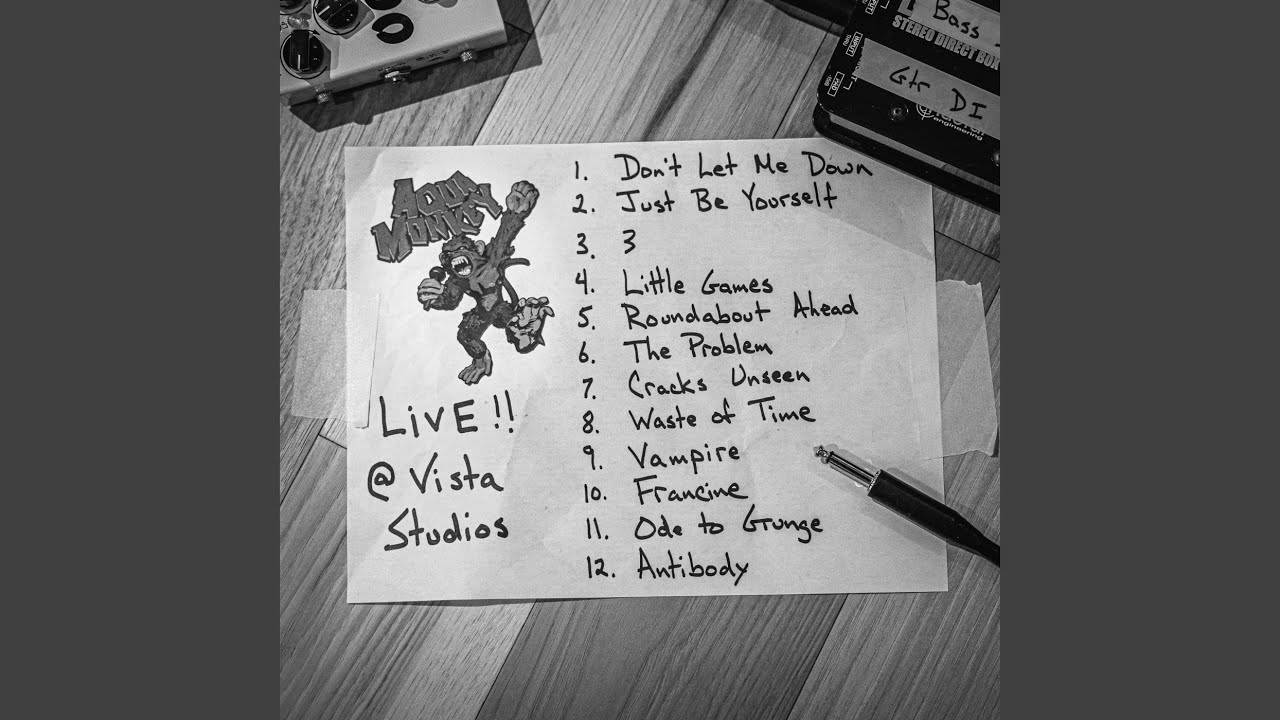 Bass
STEREO DIRECT BOX
INPUT
THRU
INPUT
PAD
Gtr DI
engineering
AQUA
MONKEY
LIVE!!
@ Vista
Studios
1. Don't Let Me Down
2. Just Be Yourself
3. 3
4. Little Games
5. Roundabout Ahead
6. The Problem
7. Cracks Unseen
8. Waste of Time
9. Vampire
10. Francine
11. Ode to Grunge
12. Antibody